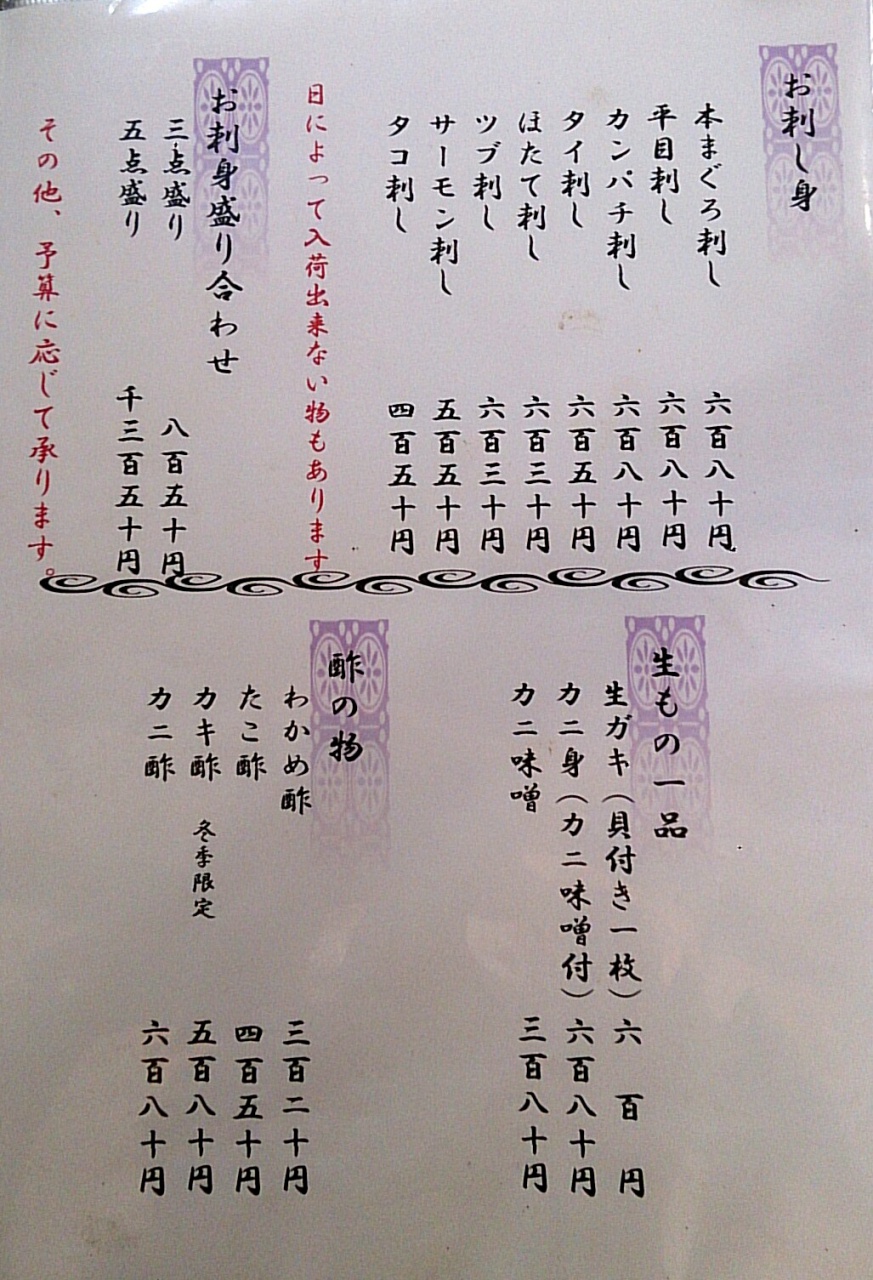 お刺し身
本まぐろ刺し 六百八十円
平目刺し 六百八十円
カンパチ刺し 六百八十円
タイ刺し 六百五十円
ほたて刺し 六百三十円
ツブ刺し 六百三十円
サーモン刺し 五百五十円
タコ刺し 四百五十円
日によって入荷出来ない物もあります
お刺身盛り合わせ
三点盛り 八百五十円
五点盛り 千三百五十円
その他、予算に応じて承ります。
生もの一品
生ガキ(貝付き一枚) 六百円
カニ身(カニ味噌付) 六百八十円
カニ味噌 三百八十円
酢の物
わかめ酢 三百二十円
たこ酢 四百五十円
カキ酢 冬季限定 五百八十円
カニ酢 六百八十円